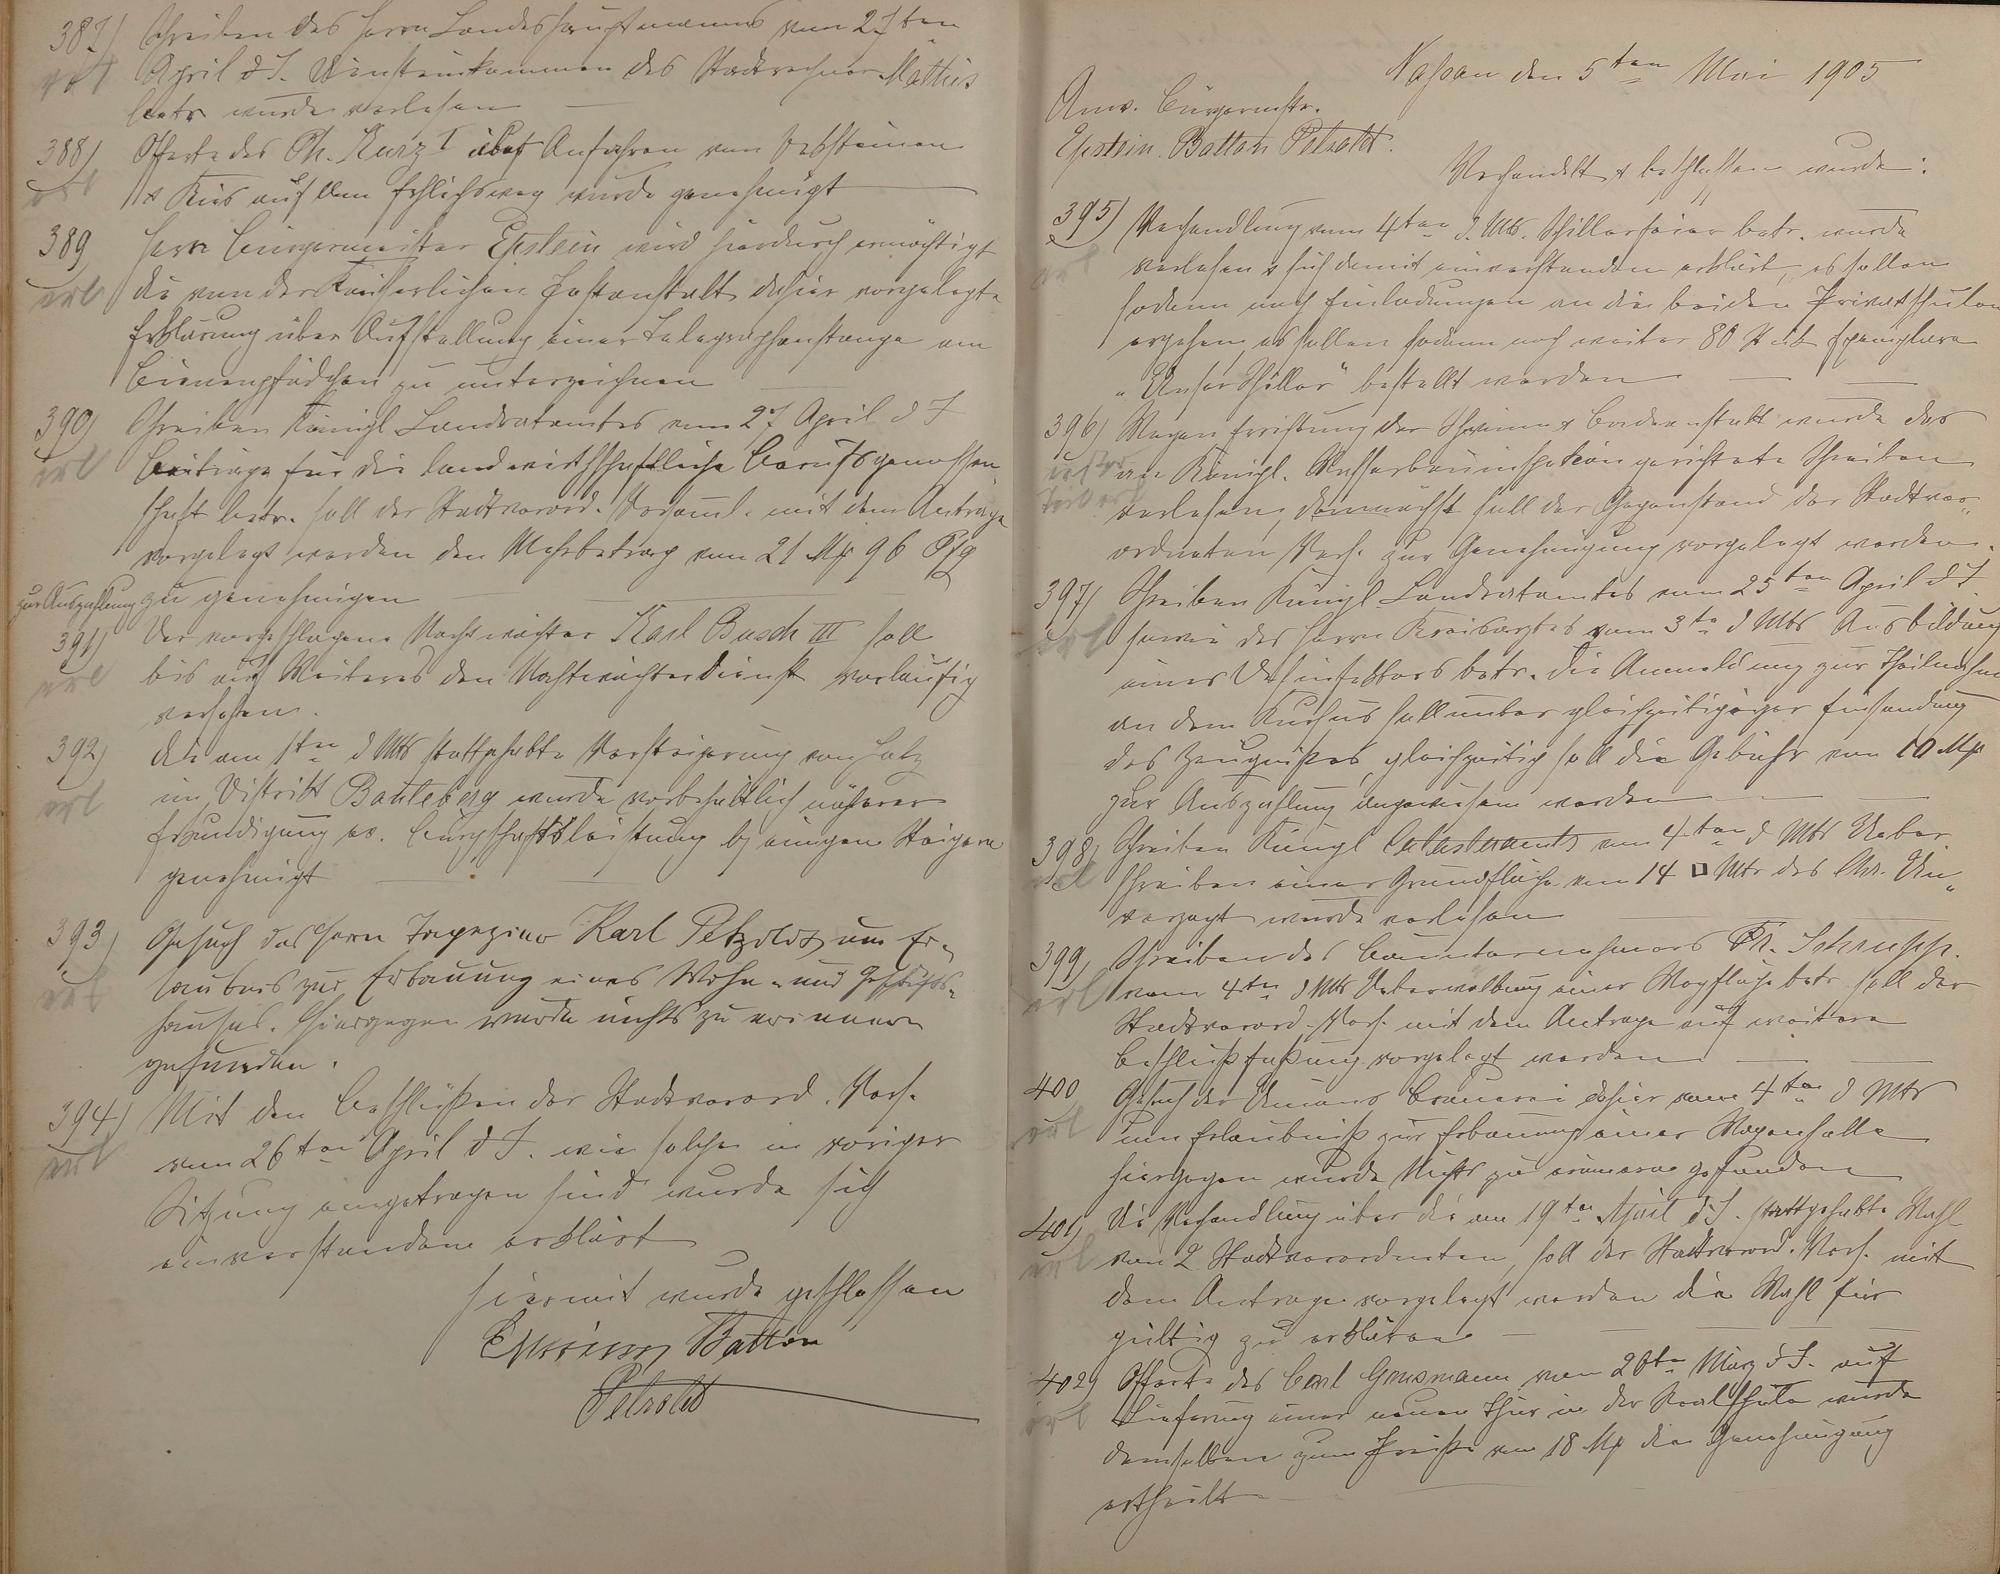 387) Schreiben des Herrn Landeshauptmanns vom 27ten
erl April d J. Diensteinkommen des Stadtrechner Mathis
betr wurde verlesen
388) Offerte des Ph. Kurz I über Anfahren von Setzsteinen
erl & Kies auf dem wurde genehmigt
389 Herr Bürgermeister Epstein wird hierdurch ermächtigt
erl die von der Kaiserlichen Postanstalt dahier vorgelegte
Erklärung über Aufstellung einer Telegraphenstange am
Bienenpfädchen zu unterzeichnen
390) Schreiben Königl Landratamtes vom 27 April d J
erl Beiträge für die landwirthschaftliche Berufsgenossen-
schaft betr. soll der Stadtverord. Versaml. mit dem Antrage
vorgelegt werden den Mehrbetrag von 21 Mk 96 Pfg
zur Auszahlung zu genehmigen
391) Der vorgeschlagene Nachtwächter Karl Busch III soll
erl bis auf Weiteres den Nachtwächterdienst vorläufig
versehen.
392) Die am 1ten d Mts stattgehabte Versteigerung von Holz
erl im Distrikt wurde vorbehaltlich näherer
Erkundigung ev. Bürgschaftsleistung bei einigen Steigerer
genehmigt
393) Gesuch des Herrn Tapezier Karl Petzoldt um Er-
erl laubnis zur Erbauung eines Wohn- und Geschäfts-
hauses. Hiergegen wurde nichts zu erinnern
gefunden.
394) Mit den Beschlüßen der Stadtverord. Vers.
erl vom 26ten April d J. wie solche in voriger
Sitzung eingetragen sind wurde sich
einverstanden erklärt
Hiermit wurde geschlossen
Epstein Batton
Petzoldt
Naßau den 5ten Mai 1905
Anw. Bürgermstr.
Epstein. Batton Petzoldt.
Verhandelt & beschlossen wurde:
395) Verhandlung vom 4ten d. Mts. Schillerfeier betr. wurde
erl verlesen & sich damit einverstanden erklärt, es sollen
sodann noch Einladungen an die beiden Privatschulen
ergehen, es sollen sodann noch weiter 80 Stück Exemplare
„Unser Schiller" bestellt werden
396) Wegen Errichtung der Schwimm & Badeanstalt wurde das
an Königl. Wasserbauinspektion gerichtete Schreiben
verlesen, demnächst soll der Gegenstand der Stadtver-
ordneten Vers. zur Genehmigung vorgelegt werden.
397) Schreiben Königl Landratamtes vom 25ten April d J.
erl sowie des Herrn Kreisarztes vom 3ten d Mts Ausbildung
eines Desinfektors betr. die Anmeldung zur Theilnahme
an dem Kursus soll unter gleichzeitiger Einsendung
des Zeugnißes, gleichzeitig soll die Gebühr von 10 Mk
zur Auszahlung angewiesen werden
398) Schreiben Königl Catasteramts vom 4ten d Mts Ueber
erl schreiben einer Grundfläche von 14 □ Mtr des Chr. Un-
verzagt wurde verlesen
399) Schreiben des Bauunternehmers Ph. Schrupp.
erl vom 4ten d Mts Ueberwölbung einer Wegfläche betr. soll der
Stadtverord. Vers. mit dem Antrage auf weitere
Beschlußfaßung vorgelegt werden
400 Gesuch der Brauerei dahier vom 4ten d Mts
erl um Erlaubniß zur Erbauung einer Wagenhalle
hiergegen wurde Nichts zu erinnern gefunden
401) Die Verhandlung über die am 19ten April d J. stattgehabte Wahl
erl von 2 Stadtverordneten, soll der Stadtverord. Vers. mit
dem Antrage vorgelegt werden die Wahl für
gültig zu erklären
402) Offerte des Carl vom 28ten März d J. auf
erl Lieferung einer neuen Thür in der Realschule wurde
demselben zum Preiße von 18 Mk die Genehmigung
ertheilt